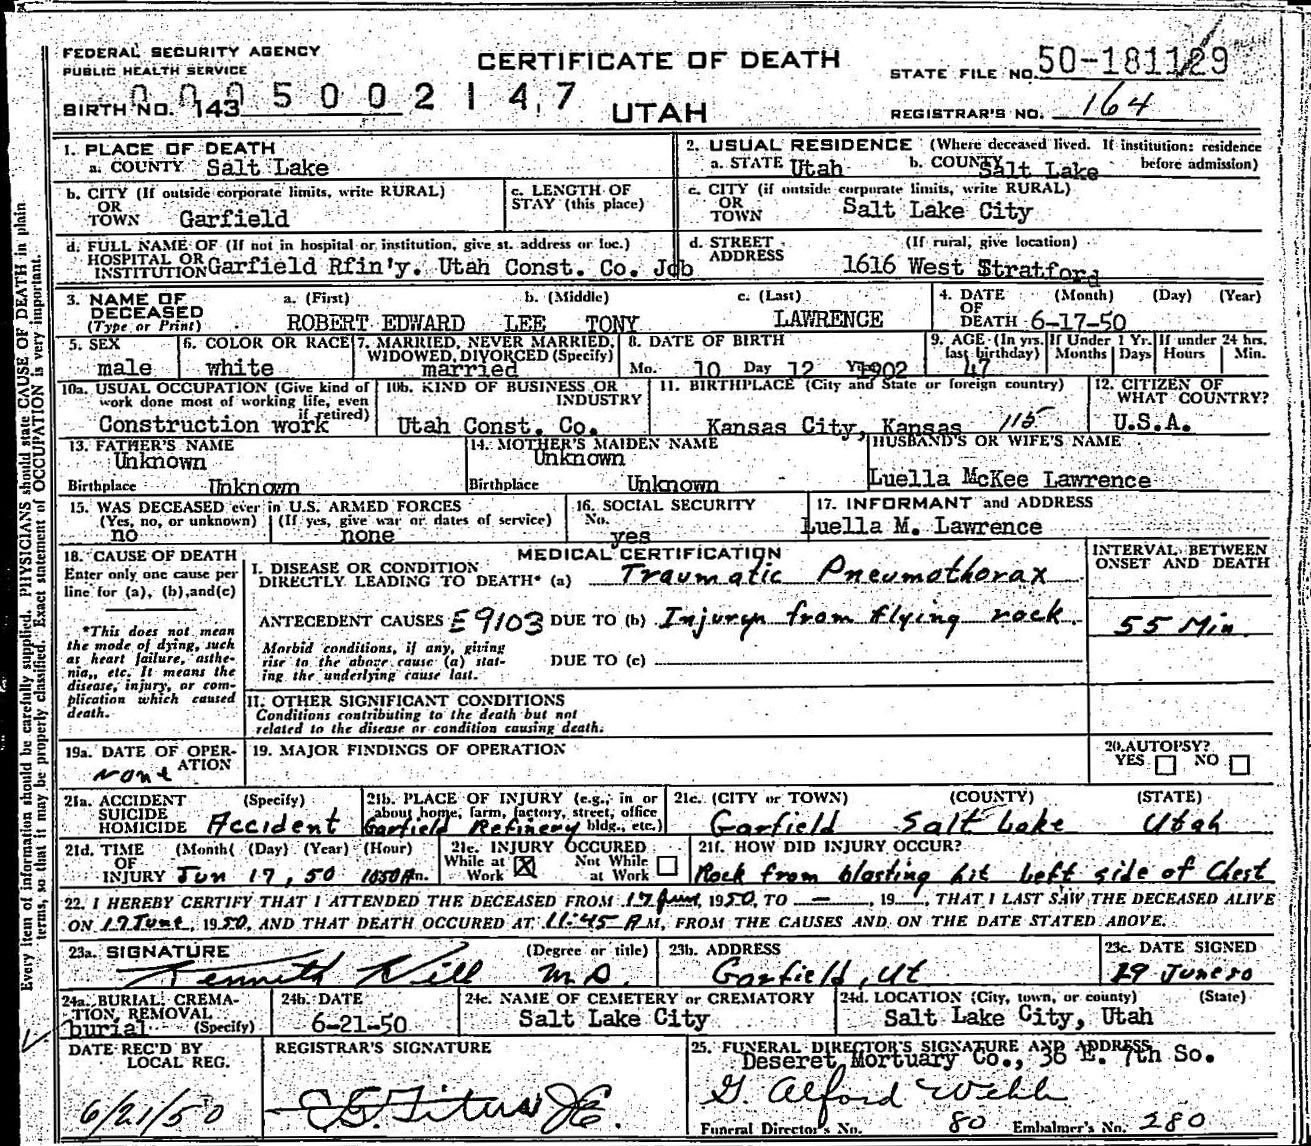 FEDERAL SECURITY AGENCY
PUBLIC HEALTH SERVICE
CERTIFICATE OF DEATH
STATE FILE NO. 50-181129
BIRTH NO. 143 0005002147
UTAH
REGISTRAR'S NO. 164
1. PLACE OF DEATH
a. COUNTY Salt Lake
2. USUAL RESIDENCE (Where deceased lived. If institution: residence before admission)
a. STATE Utah b. COUNTY Salt Lake
b. CITY (If outside corporate limits, write RURAL)
OR
TOWN Garfield
c. LENGTH OF
STAY (this place)
c. CITY (if outside corporate limits, write RURAL)
OR
TOWN Salt Lake City
d. FULL NAME OF (If not in hospital or institution, give st. address or loc.)
HOSPITAL OR
INSTITUTION Garfield Rfin'y. Utah Const. Co. Job
d. STREET (If rural, give location)
ADDRESS 1616 West Stratford
3. NAME OF
DECEASED
(Type or Print)
a. (First) b. (Middle) c. (Last)
ROBERT EDWARD LEE TONY LAWRENCE
4. DATE (Month) (Day) (Year)
OF
DEATH 6-17-50
5. SEX
male
6. COLOR OR RACE
white
7. MARRIED, NEVER MARRIED,
WIDOWED, DIVORCED (Specify)
married
8. DATE OF BIRTH
Mo. 10 Day 12 Yr. 1902
9. AGE (In yrs. last birthday)
47
If Under 1 Yr.
Months Days
If under 24 hrs.
Hours Min.
10a. USUAL OCCUPATION (Give kind of
work done most of working life, even
if retired)
Construction work
10b. KIND OF BUSINESS OR
INDUSTRY
Utah Const. Co.
11. BIRTHPLACE (City and State or foreign country)
Kansas City, Kansas 115
12. CITIZEN OF
WHAT COUNTRY?
U.S.A.
13. FATHER'S NAME
Unknown
Birthplace Unknown
14. MOTHER'S MAIDEN NAME
Unknown
Birthplace Unknown
HUSBAND'S OR WIFE'S NAME
Luella McKee Lawrence
15. WAS DECEASED ever in U.S. ARMED FORCES
(Yes, no, or unknown) (If yes, give war or dates of service)
no none
16. SOCIAL SECURITY
No.
yes
17. INFORMANT and ADDRESS
Luella M. Lawrence
18. CAUSE OF DEATH
Enter only one cause per
line for (a), (b), and (c)
*This does not mean
the mode of dying, such
as heart failure, asthe-
nia,, etc. It means the
disease, injury, or com-
plication which caused
death.
MEDICAL CERTIFICATION
I. DISEASE OR CONDITION
DIRECTLY LEADING TO DEATH* (a) Traumatic Pneumothorax
ANTECEDENT CAUSES E9103 DUE TO (b) Injuryn from flying rock.
Morbid conditions, if any, giving
rise to the above cause (a) stat-
ing the underlying cause last.
DUE TO (c)
INTERVAL BETWEEN
ONSET AND DEATH
55 Min.
II. OTHER SIGNIFICANT CONDITIONS
Conditions contributing to the death but not
related to the disease or condition causing death.
19a. DATE OF OPER-
ATION
None
19. MAJOR FINDINGS OF OPERATION
20. AUTOPSY?
YES NO
21a. ACCIDENT (Specify)
SUICIDE
HOMICIDE Accident
21b. PLACE OF INJURY (e.g., in or
about home, farm, factory, street, office
bldg., etc.)
Garfield Refinery
21c. (CITY or TOWN) (COUNTY) (STATE)
Garfield Salt Lake Utah
21d. TIME (Month( (Day) (Year) (Hour)
OF
INJURY Jun 17, 50 1050 Am.
21e. INJURY OCCURED
While at Work X Not While at Work
21f. HOW DID INJURY OCCUR?
Rock from blasting hit left side of Chest
22. I HEREBY CERTIFY THAT I ATTENDED THE DECEASED FROM 17 June, 1950, TO —, 19—, THAT I LAST SAW THE DECEASED ALIVE
ON 17 June, 1950, AND THAT DEATH OCCURED AT 11:45 A M, FROM THE CAUSES AND ON THE DATE STATED ABOVE.
23a. SIGNATURE (Degree or title)
Kenneth Nill M.D.
23b. ADDRESS
Garfield, Ut
23c. DATE SIGNED
19 June 50
24a. BURIAL, CREMA-
TION, REMOVAL
burial (Specify)
24b. DATE
6-21-50
24c. NAME OF CEMETERY or CREMATORY
Salt Lake City
24d. LOCATION (City, town, or county) (State)
Salt Lake City, Utah
DATE REC'D BY
LOCAL REG.
6/21/50
REGISTRAR'S SIGNATURE
25. FUNERAL DIRECTOR'S SIGNATURE AND ADDRESS
Deseret Mortuary Co., 36 E. 7th So.
G. Alford Webb
Funeral Director's No. 80 Embalmer's No. 280
Every item of information should be carefully supplied. PHYSICIANS should state CAUSE OF DEATH in plain
terms, so that it may be properly classified. Exact statement of OCCUPATION is very important.